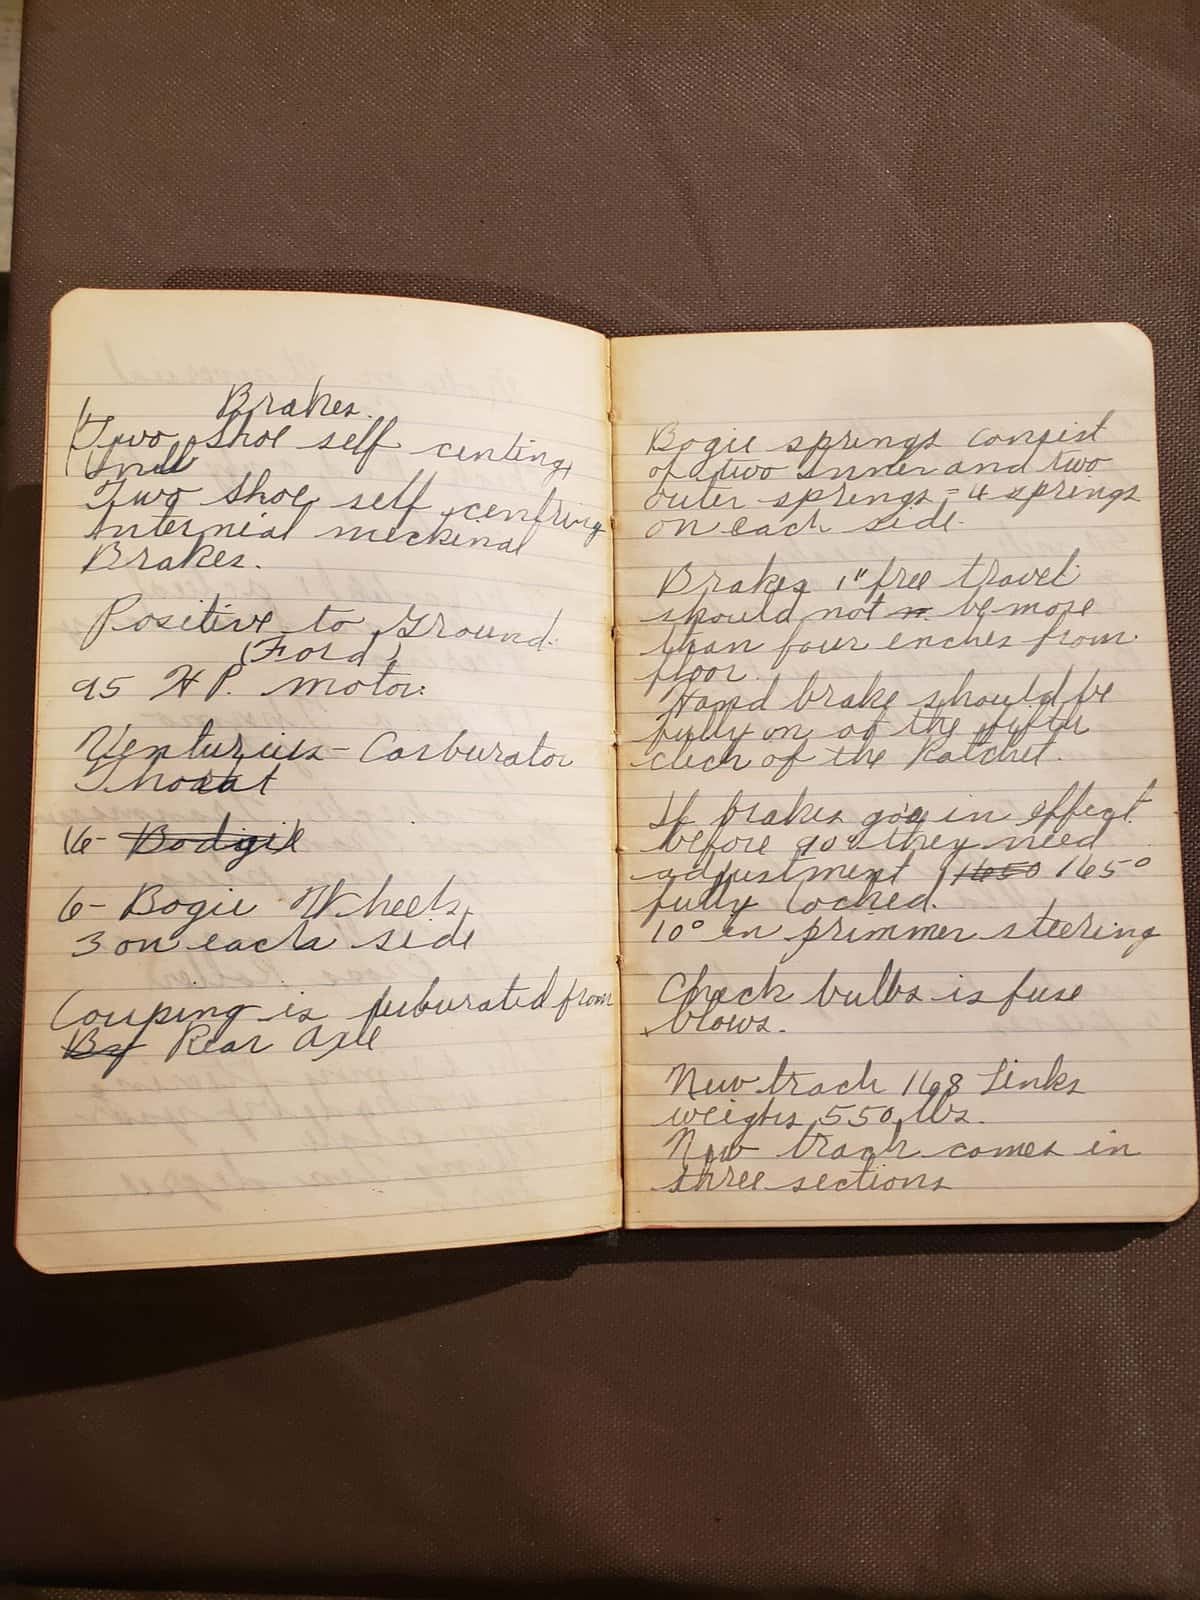 Brakes.
(Two Shoe self centing
Two Shoe self centring
Internial meckinal
Brakes.
Positive to Ground.
(Ford)
95 H.P. motor.
Venturius - Carburator
Thoraat
16- Bodgie
6- Bogie Wheels,
3 on each side
Couping is luburated from
By Rear Axle
Bogie springs consist
of two inner and two
outer springs = 4 springs
on each side.
Brakes 1" free travel
should not be more
than four enches from
floor.
Hand brake should be
fully on at the fifth
click of the Ratchet.
If brakes go in effect
before 90° they need
adjustment 1650 165°
fully locked.
10° in primmer steering
Check bulbs is fuse
blows.
New track 168 links
weighs 550 lbs.
New track comes in
three sections